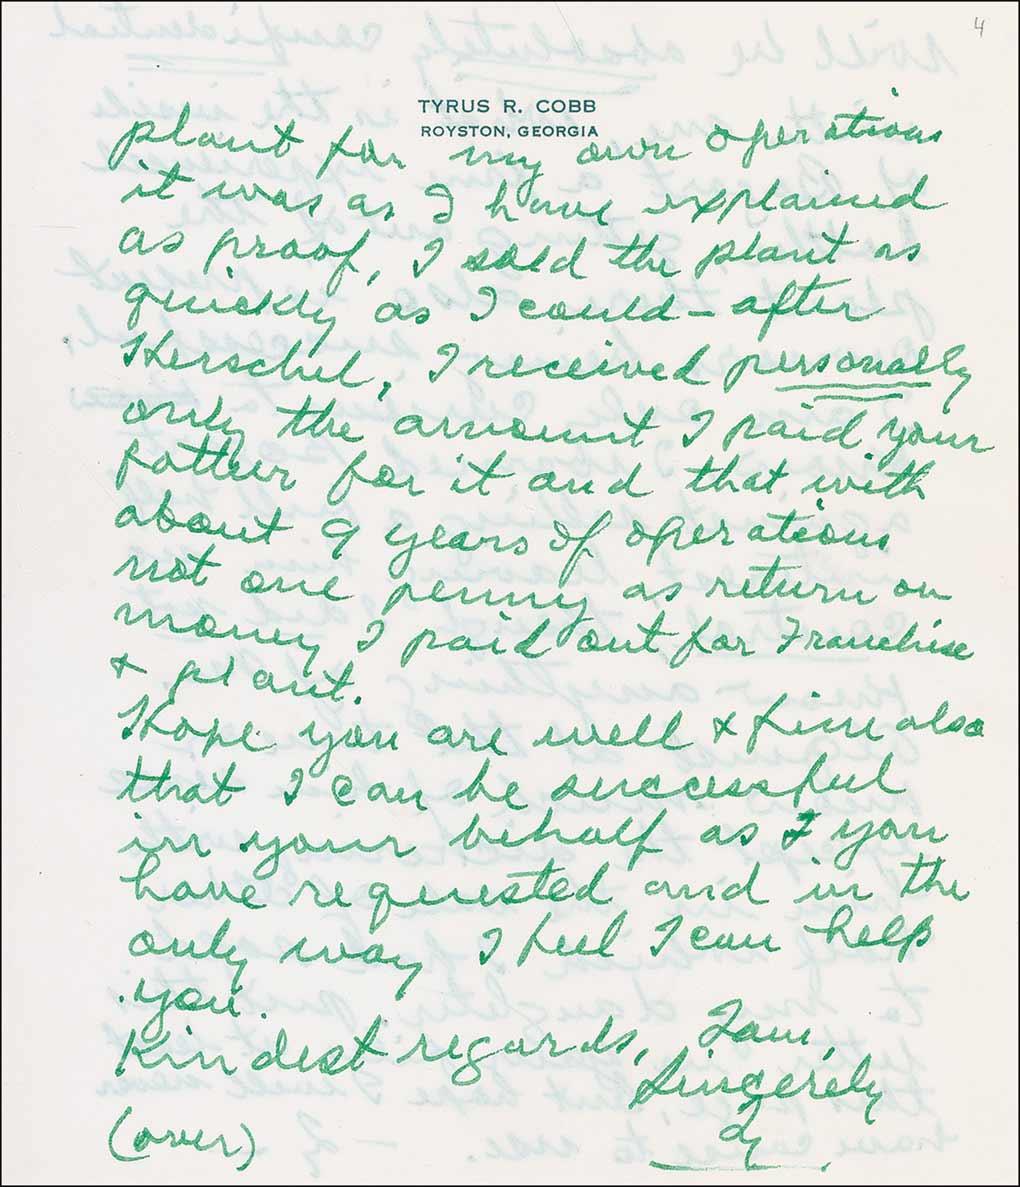 4
TYRUS R. COBB
ROYSTON, GEORGIA
plant for my own operations
it was as I have explained
as proof, I sold the plant as
quickly as I could – after
Herschel, I received personally
only the amount I paid your
father for it and that with
about 9 years of operations
not one penny as return on
money I paid out for Franchise
& plant.
Hope you are well & fine also
that I can be successful
in your behalf as I you
have requested and in the
only way I feel I can help
you.
Kindest regards, I am,
Sincerely
Ty
(over)